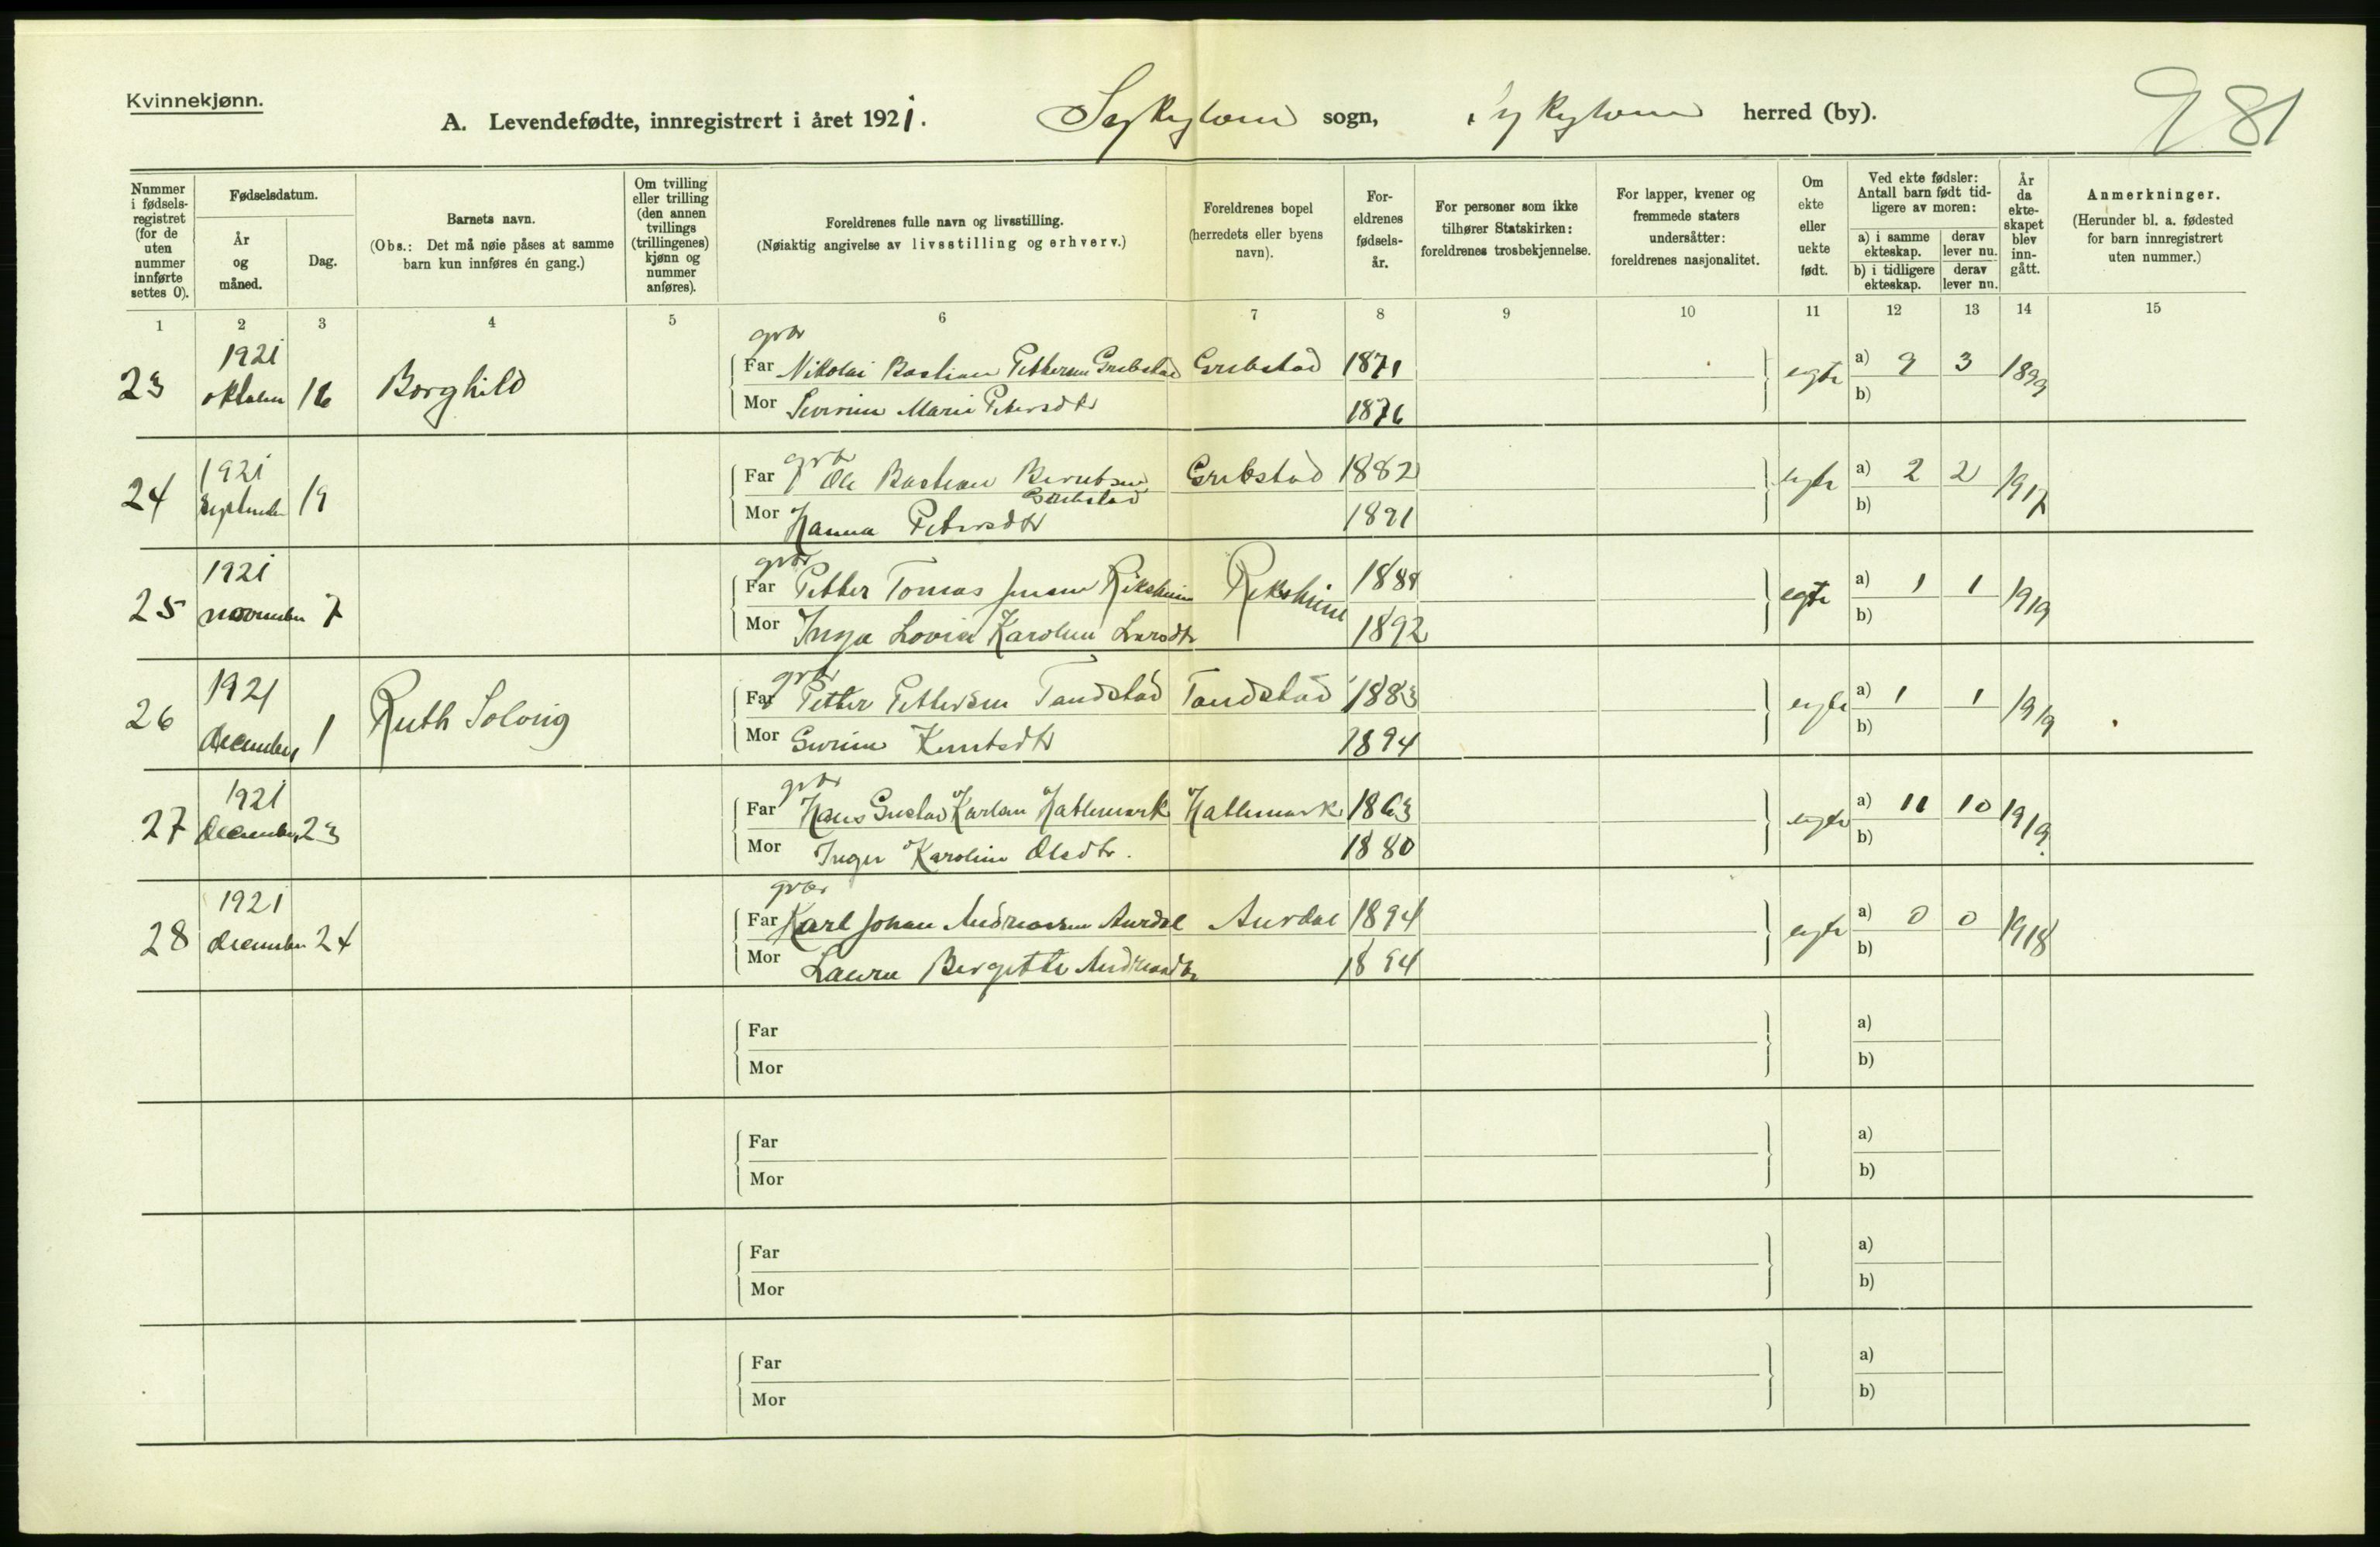 Kvinnekjønn.
A. Levendefødte, innregistrert i året 1921. Sykylven sogn, Sykylven herred (by).
981
Nummer i fødselsregistret (for de uten nummer innførte settes 0).
Fødselsdatum.
År og måned.
Dag.
Barnets navn.
(Obs.: Det må nøie påses at samme barn kun innføres én gang.)
Om tvilling eller trilling (den annen tvillings (trillingenes) kjønn og nummer anføres).
Foreldrenes fulle navn og livsstilling.
(Nøiaktig angivelse av livsstilling og erhverv.)
Foreldrenes bopel (herredets eller byens navn).
Foreldrenes fødselsår.
For personer som ikke tilhører Statskirken: foreldrenes trosbekjennelse.
For lapper, kvener og fremmede staters undersåtter: foreldrenes nasjonalitet.
Om ekte eller uekte født.
Ved ekte fødsler: Antall barn født tidligere av moren:
a) i samme ekteskap.
derav lever nu.
b) i tidligere ekteskap.
derav lever nu.
År da ekteskapet blev inngått.
Anmerkninger.
(Herunder bl. a. fødested for barn innregistrert uten nummer.)
1 2 3 4 5 6 7 8 9 10 11 12 13 14 15
gbr
23 1921 oktober 16 Borghild Far Nikolai Bastian Pettersen Grebstad Grebstad 1871 egte a) 9 3 1899
Mor Severine Marie Petersdtr 1876 b)
gbr
24 1921 september 19 Far Ole Bastian Berntsen Grebstad Grebstad 1882 egte a) 2 2 1917
Mor Hanna Petersdtr 1891 b)
gbr
25 1921 november 7 Far Petter Tomas Jensen Riksheim Riksheim 1888 egte a) 1 1 1919
Mor Inga Lovise Karoline Larsdtr 1892 b)
gbr
26 1921 december 1 Ruth Solvig Far Petter Pettersen Tandstad Tandstad 1883 egte a) 1 1 1919
Mor Knutsdtr 1894 b)
gbr
27 1921 december 23 Far Hans Gustav Karlsen Hatlemark Hatlemark 1863 egte a) 11 10 1919.
Mor Inger Karoline Olsdtr. 1880 b)
gbr
28 1921 december 24 Far Karl Johan Andreassen Aurdal Aurdal 1894 egte a) 0 0 1918
Mor Laura Bergitte Andreasdtr 1894 b)
Far a)
Mor b)
Far a)
Mor b)
Far a)
Mor b)
Far a)
Mor b)